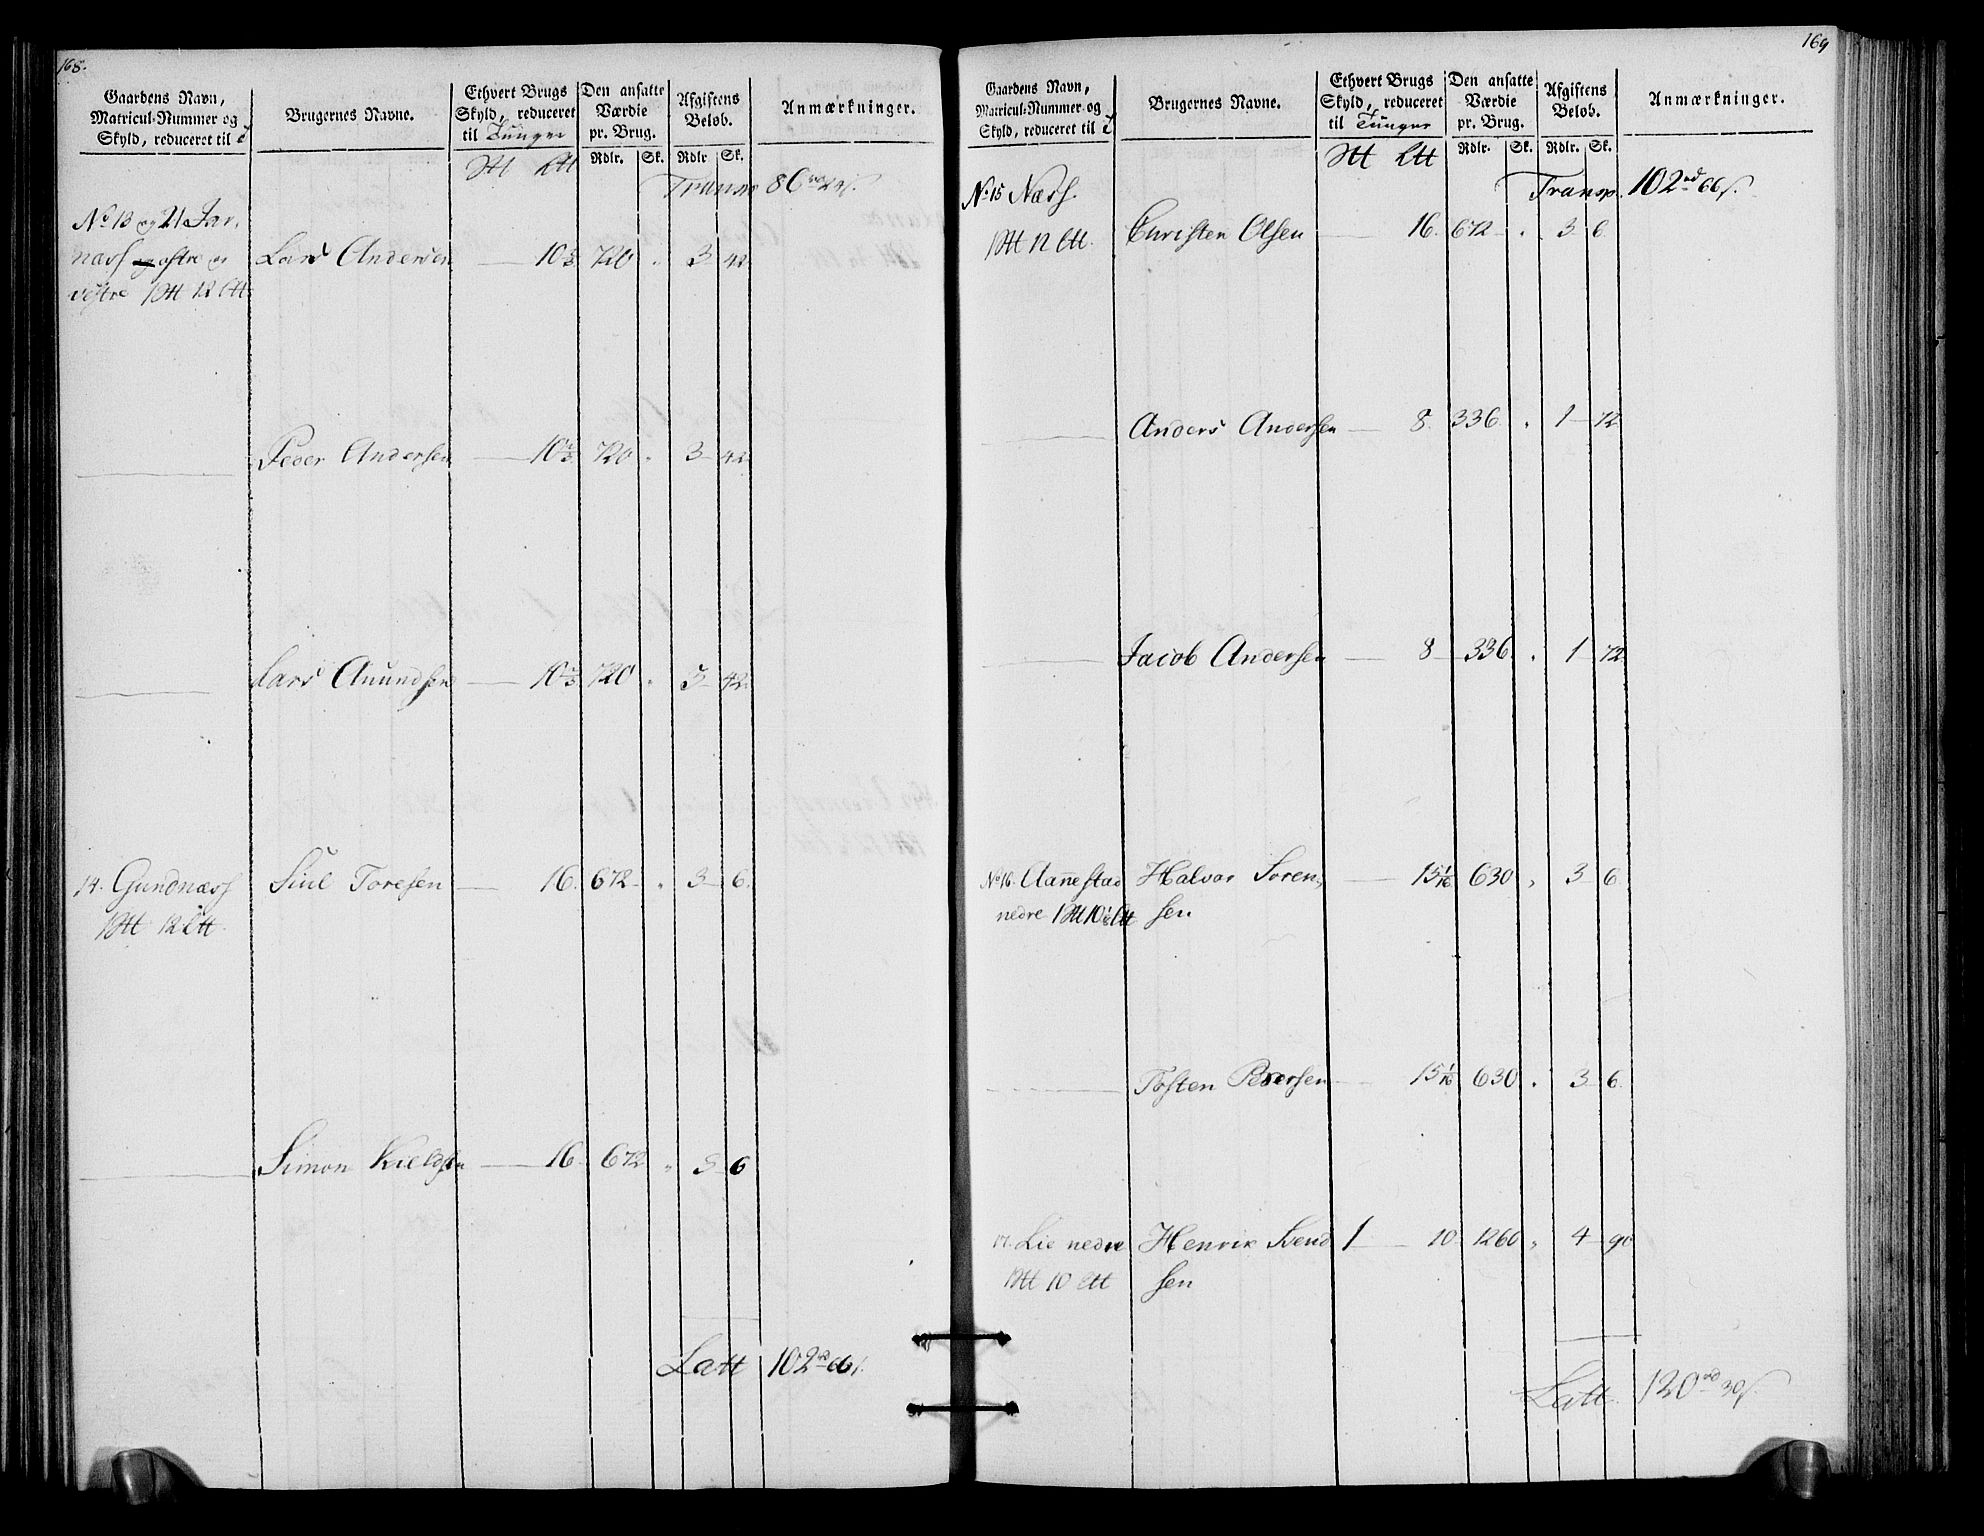 168.
Gaardens Navn, Matricul-Nummer og Skyld, reduceret til
Brugernes Navne.
Ethvert Brugs Skyld, reduceret til Tunger
Den ansatte Værdie pr. Brug.
Afgiftens Beløb.
Anmærkninger.
Rdlr. Sk. Rdlr Sk.
Transp 86
No 13 og 21 Jar,
næss østre og Lars Andersen 10 2/3 720 " 3 42
vestre 1 12
Peder Andersen 10 2/3 720 " 3 42
Lars Anundsen 10 2/3 720 " 3 42
14. Gundnæss Siul Toresen 16. 672 " 3 6.
1 12
Simon Kieldsen 16 672 " 3 6
Latt 102 rd 66 s.
169
Gaardens Navn, Matricul-Nummer og Skyld, reduceret til
Brugernes Navne.
Ethvert Brugs Skyld, reduceret til Tunger
Den ansatte Værdie pr. Brug.
Afgiftens Beløb.
Anmærkninger.
Rdlr. Sk. Rdlr. Sk.
Transp. 102 rd 66 s.
No 15 Næss.
1 12 Christen Olsen 16. 672 " 3 6
Anders Andersen 8. 336 " 1 72
Jacob Andersen 8 336 " 1 72
No 16. Aannestad Halvor Soren, 15 1/16 630 " 3 6
nedre 1 10 sen
Tosten Pedersen 15 1/16 630 " 3 6.
17. Lie nedre Henrik Svend 1 10 1260 " 4 90
1 10 sen
Latt. 120 rd 30 s.